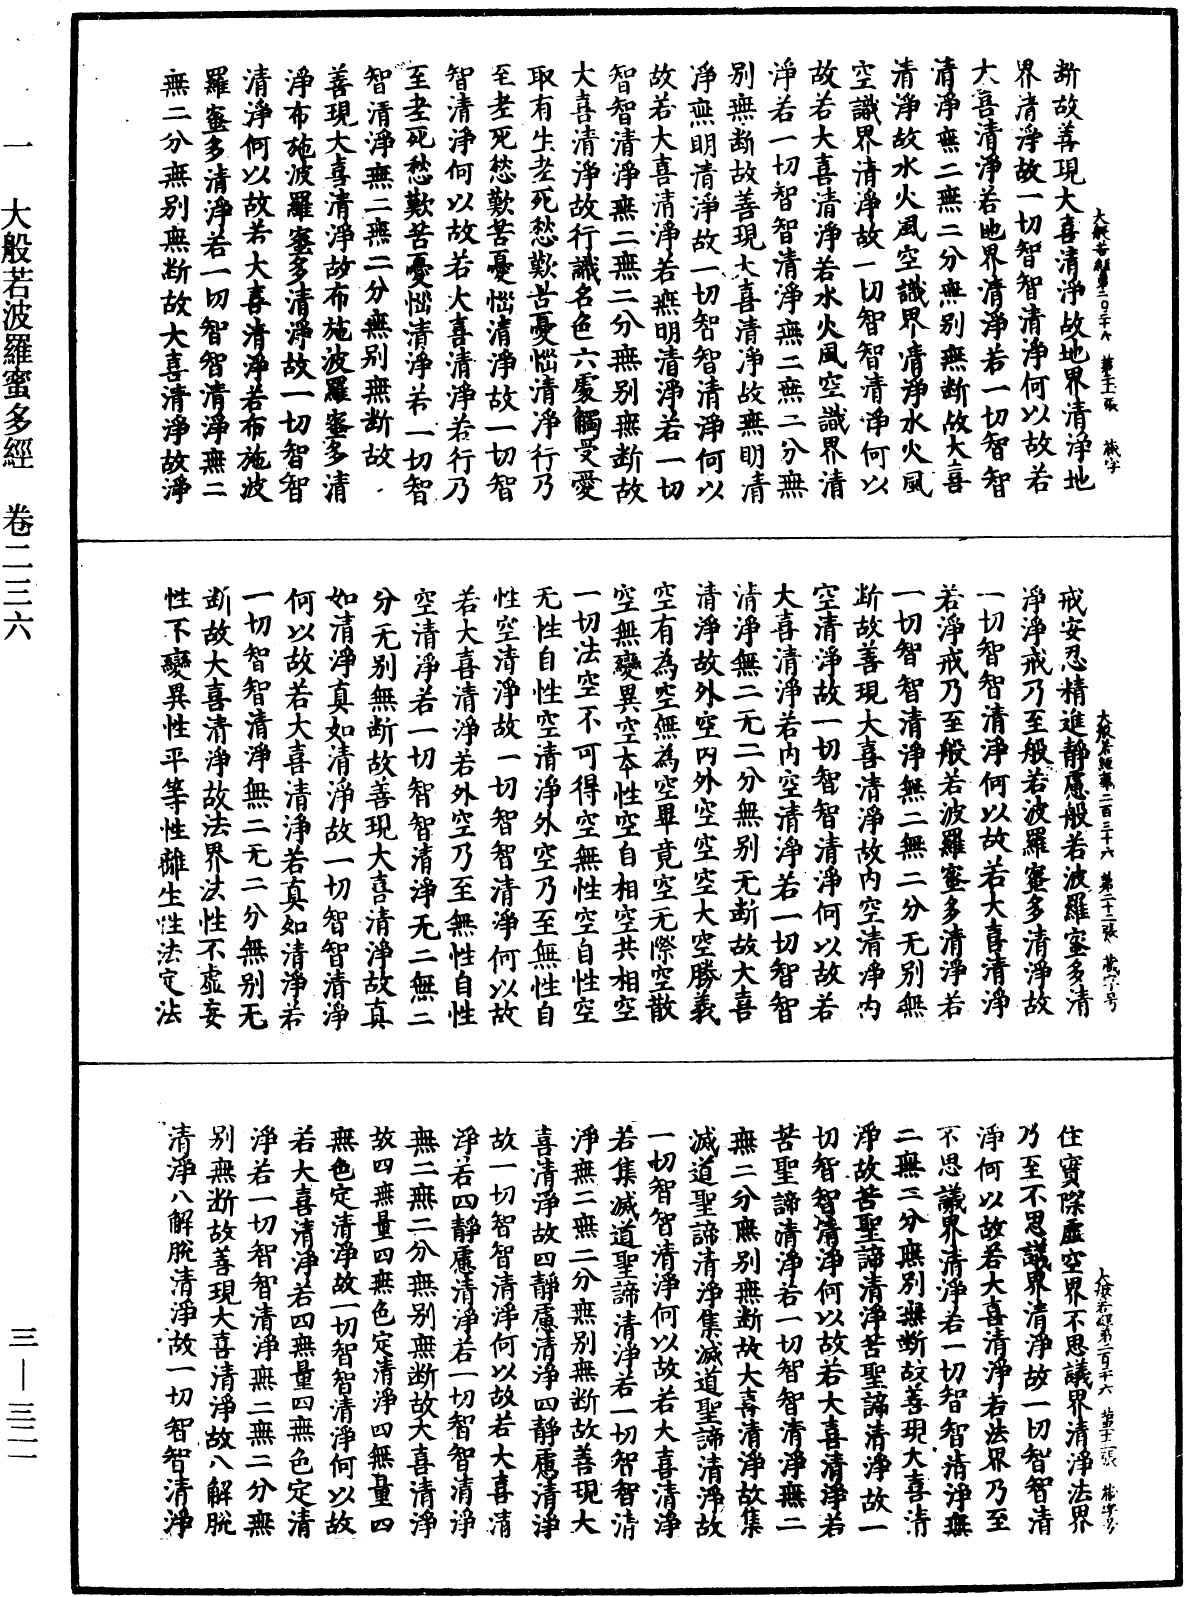 一 大般若波羅蜜多經 卷二三六
三—三二一
断故善現大喜清淨故地界清淨地
界清淨故一切智智清淨何以故若
大喜清淨若地界清淨若一切智智
清淨無二無二分無别無断故大喜
清淨故水火風空識界清淨水火風
空識界清淨故一切智智清淨何以
故若大喜清淨若水火風空識界清
淨若一切智智清淨無二無二分無
别無断故善現大喜清淨故無明清
淨無明清淨故一切智智清淨何以
故若大喜清淨若無明清淨若一切
智智清淨無二無二分無别無断故
大喜清淨故行識名色六處觸受愛
取有生老死愁歎苦憂惱清淨行乃
至老死愁歎苦憂惱清淨故一切智
智清淨何以故若大喜清淨若行乃
至老死愁歎苦憂惱清淨若一切智
智清淨無二無二分無别無断故
善現大喜清淨故布施波羅蜜多清
淨布施波羅蜜多清淨故一切智智
清淨何以故若大喜清淨若布施波
羅蜜多清淨若一切智智清淨無二
無二分無别無断故大喜清淨故淨
大般若經第二百三十六 第二十二張 藏字号
戒安忍精進靜慮般若波羅蜜多清
淨淨戒乃至般若波羅蜜多清淨故
一切智智清淨何以故若大喜清淨
若淨戒乃至般若波羅蜜多清淨若
一切智智清淨無二無二分无别無
断故善現大喜清淨故内空清淨内
空清淨故一切智智清淨何以故若
大喜清淨若内空清淨若一切智智
清淨無二无二分無别无断故大喜
清淨故外空内外空空空大空勝義
空有為空無為空畢竟空无際空散
空無變異空本性空自相空共相空
一切法空不可得空無性空自性空
无性自性空清淨外空乃至無性自
性空清淨故一切智智清淨何以故
若大喜清淨若外空乃至無性自性
空清淨若一切智智清淨无二無二
分无别無断故善現大喜清淨故真
如清淨真如清淨故一切智智清淨
何以故若大喜清淨若真如清淨若
一切智智清淨無二无二分無别无
断故大喜清淨故法界法性不虛妄
性不變異性平等性離生性法定法
住實際虛空界不思議界清淨法界
乃至不思議界清淨故一切智智清
淨何以故若大喜清淨若法界乃至
不思議界清淨若一切智智清淨無
二無二分無别無断故善現大喜清
淨故苦聖諦清淨苦聖諦清淨故一
切智智清淨何以故若大喜清淨若
苦聖諦清淨若一切智智清淨無二
無二分無别無断故大喜清淨故集
滅道聖諦清淨集滅道聖諦清淨故
一切智智清淨何以故若大喜清淨
若集滅道聖諦清淨若一切智智清
淨無二無二分無别無断故善現大
喜清淨故四靜慮清淨四靜慮清淨
故一切智智清淨何以故若大喜清
淨若四靜慮清淨若一切智智清淨
無二無二分無别無断故大喜清淨
故四無量四無色定清淨四無量四
無色定清淨故一切智智清淨何以故
若大喜清淨若四無量四無色定清
淨若一切智智清淨無二無二分無
别無断故善現大喜清淨故八解脫
清淨八解脫清淨故一切智智清淨